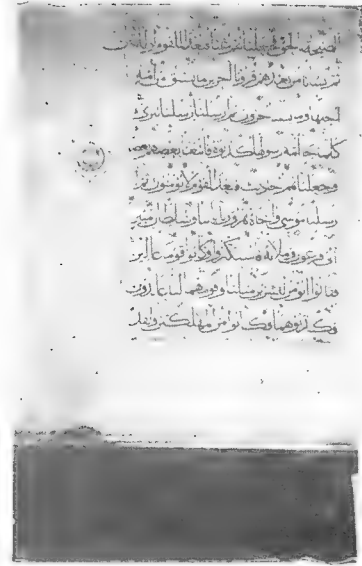 الصيحة بالحق فجعلناهم غثاء فبعدا للقوم الظالمين
ثم انشانا من بعدهم قرونا اخرين ما تسبق من امة
اجلها وما يستاخرون ثم ارسلنا رسلنا تترى
كلما جا امة رسولها كذبوه فاتبعنا بعضهم بعضا
وجعلنهم احاديث فبعدا لقوم لا يومنون ثم
ارسلنا موسى واخاه هرون بايتنا وسلطان مبين
الى فرعون وملائه فاستكبروا وكانوا قوما عالين
فقالوا انومن لبشرين مثلنا وقومهما لنا عابدون
فكذبوهما فكانوا من المهلكين ولقد